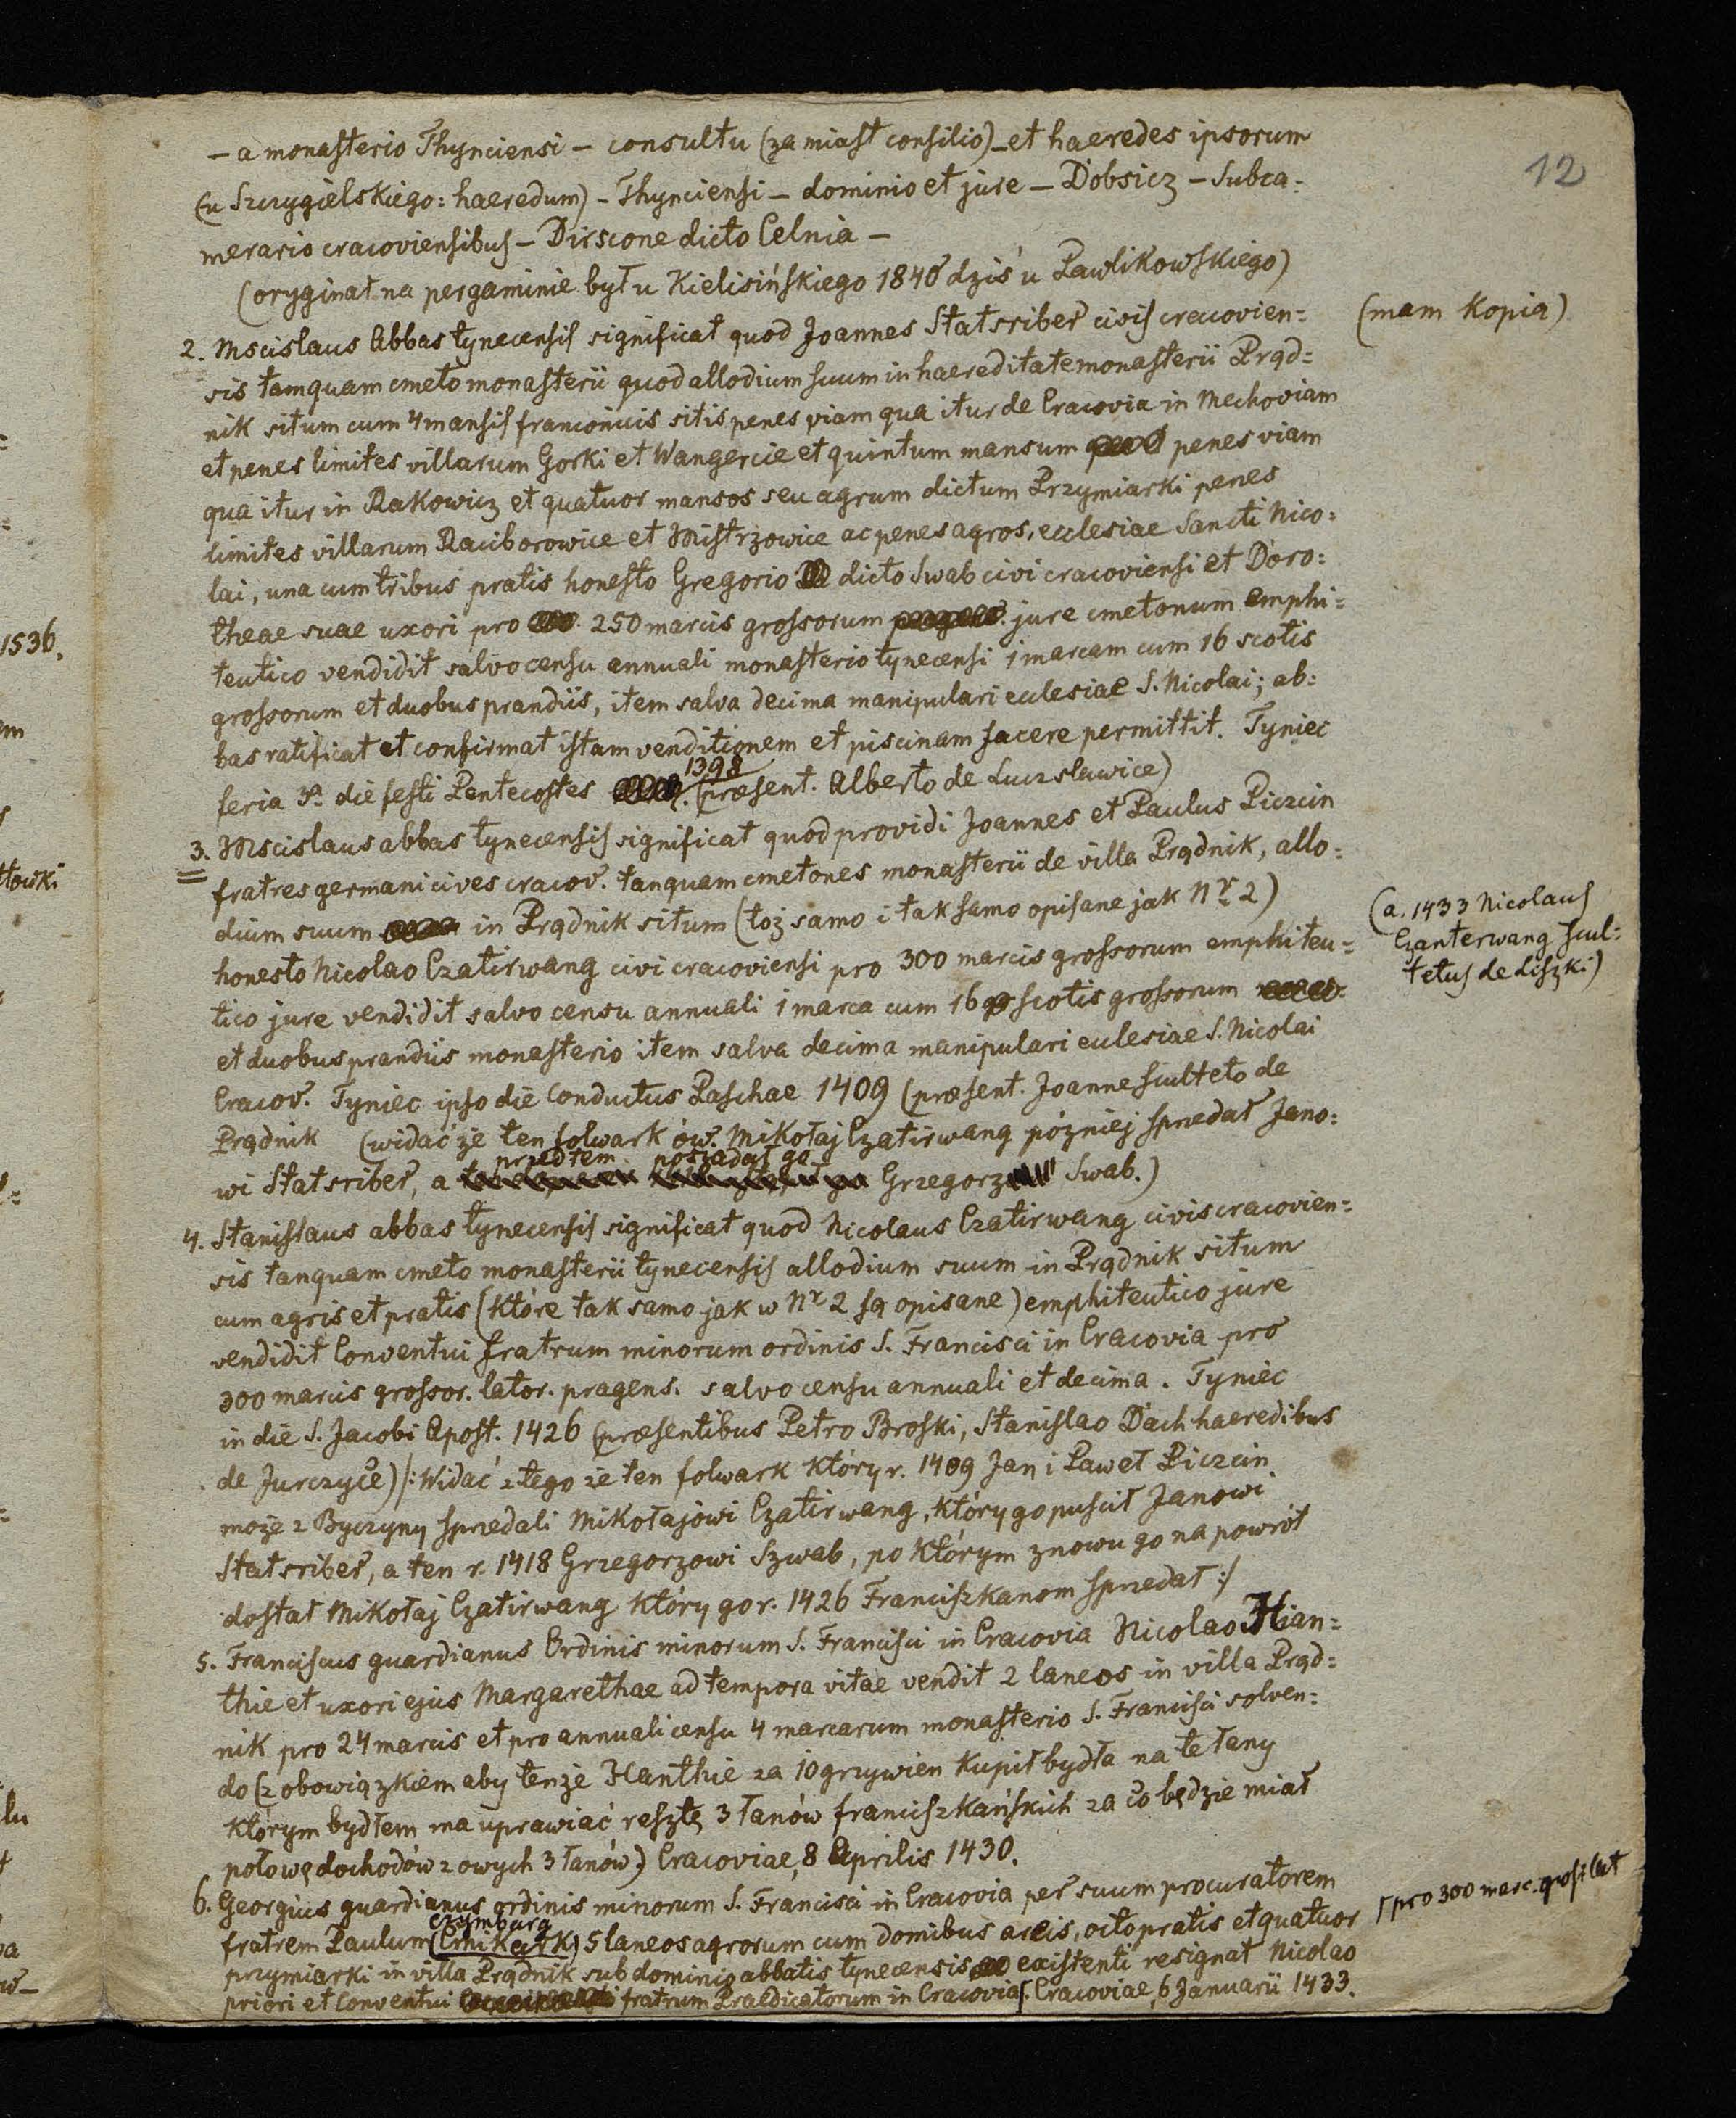 12
— a monasterio Thynciensi — consultu (zamiast consilio) — et haeredes ipsorum
(u Szczygielskiego: haeredum) — Thynciensi — dominio et jure — Dobsicz — Subca=
merario cracoviensibus — Dirscone dicto Celnia —
(oryginał na pergaminie był u Kielisińskiego 1840 dziś u Pawlikowskiego)
(mam kopią)
2. Mscislaus Abbas tynecensis significat quod Joannes Statsriber civis cracovien=
sis tamquam cmeto monasterii quod allodium suum in haereditate monasterii Prąd=
nik situm cum 4 mansis franconicis sitis penes viam qua itur de Cracovia in Mechoviam
et penes limites villarum Gorki et Wangercie et quintum mansum penes viam
qua itur in Rakowicz et quatuor mansos seu agrum dictum Przymiarki penes
limites villarum Raciborowice et Mistrzowice ac penes agros, ecclesiae Sancti Nico=
lai, una cum tribus pratis honesto Gregorio dicto Swab civi cracoviensi et Doro=
theae suae uxori pro 250 marcis grossorum jure cmetonum emphi=
teutico vendidit salvo censu annuali monasterio tynecensi 1 marcam cum 16 scotis
grossorum et duobus prandiis, item salva decima manipulari ecclesiae S. Nicolai; ab=
bas ratificat et confirmat istam venditionem et piscinam facere permittit. Tyniec
feria 3a die festi Pentecostes 1398 (praesent. Alberto de Luczslawice)
3. Mscislaus abbas tynecensis significat quod providi Joannes et Paulus Piczcin
fratres germani cives cracov. tanquam cmetones monasterii de villa Prądnik, allo=
dium suum in Prądnik situm (toż samo i tak samo opisane jak Nr 2)
honesto Nicolao Czatirwang civi cracoviensi pro 300 marcis grossorum emphiteu=
(a. 1433 Nicolaus
Czanterwang scul=
tetus de Liszki)
tico jure vendidit salvo censu annuali 1 marca cum 16 scotis grossorum
et duobus prandiis monasterio item salva decima manipulari ecclesiae S. Nicolai
Cracov. Tyniec ipso die Conductus Paschae 1409 (praesent. Joanne sculteto de
Prądnik (widać że ten folwark ów. Mikołaj Czatirwang później sprzedał Jano=
wi Statsriber, a przedtem posiadał go Grzegorz Swab.)
4. Stanislaus abbas tynecensis significat quod Nicolaus Czatirwang civis cracovien=
sis tanquam cmeto monasterii tynecensis allodium suum in Prądnik situm
cum agris et pratis (które tak samo jak w Nr 2 są opisane) emphiteutico jure
vendidit Conventui fratrum minorum ordinis S. Francisci in Cracovia pro
300 marcis grossor. lator. pragens. salvo censu annuali et decima. Tyniec
in die S. Jacobi Apost. 1426 (praesentibus Petro Broski, Stanislao Dach haeredibus
de Jurczyce) /: Widać z tego że ten folwark który r. 1409 Jan i Paweł Piczcin
może z Byczyny sprzedali Mikołajowi Czatirwang, który go puścił Janowi
Statsriber, a ten r. 1418 Grzegorzowi Szwab, po którym znowu go na powrót
dostał Mikołaj Czatirwang który go r. 1426 Franciszkanom sprzedał :/
5. Franciscus guardianus Ordinis minorum S. Francisci in Cracovia Nicolao Hian=
thie et uxori ejus Margarethae ad tempora vitae vendit 2 laneos in villa Prąd=
nik pro 24 marcis et pro annuali censu 4 marcarum monasterio S. Francisci solven=
do (z obowiązkiem aby tenże Hanthie za 10 grzywien kupił bydła na te łany
którym bydłem ma uprawiać resztę 3 łanów franciszkańskich za co będzie miał
połowę dochodów z owych 3 łanów) Cracoviae, 8 Aprilis 1430.
6. Georgius guardianus ordinis minorum S. Francisci in Cracovia per suum procuratorem
fratrem Paulum (Czymburg 5 laneos agrorum cum domibus areis, octo pratis et quatuor
przymiarki in villa Prądnik sub dominio abbatis tynecensis existenti resignat Nicolao
priori et Conventui fratrum Praedicatorum in Cracovia Cracoviae, 6 Januarii 1433.
pro 300 marc. gross. lat
1536.